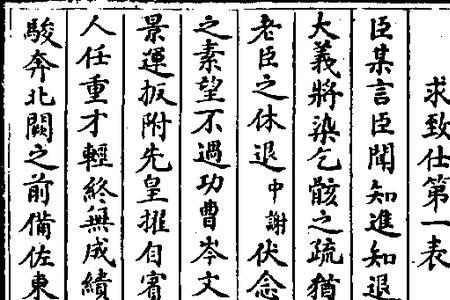 求致仕第一表
臣某言臣聞知進知退
大義將染乞骸之疏猶
老臣之休退中謝伏念
之素望不過功曹岑文
景運扳附先皇擢自賓
人任重才輕終無成績
駿奔北闕之前備佐東